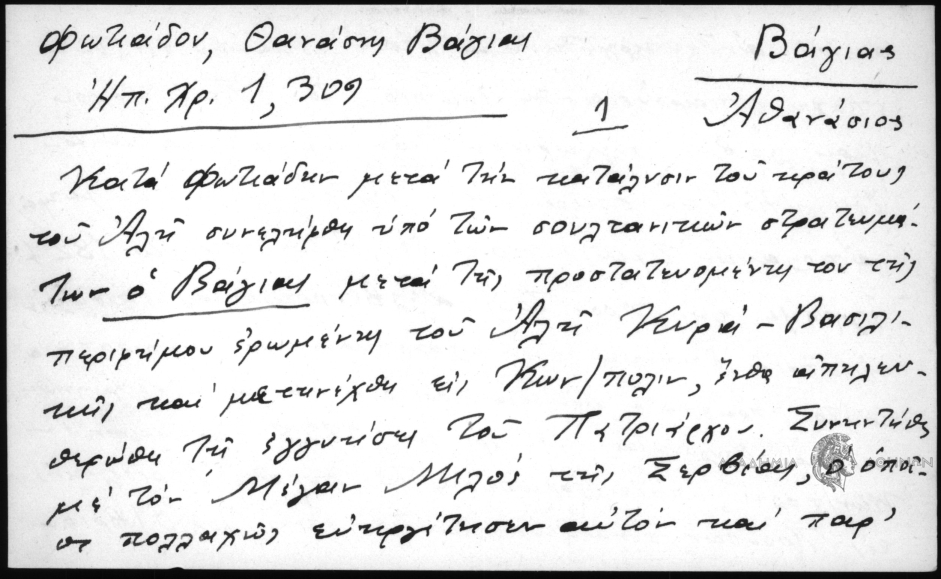 Φωτιάδου, Θανάσης Βάγιας
Βάγιας
Ἠπ. Χρ. 1, 309
1
Ἀθανάσιος
Κατά Φωτιάδην μετά τήν κατάλυσιν τοῦ κράτους
τοῦ Ἀλῆ συνελήφθη ὑπό τῶν σουλτανικῶν στρατευμά-
των ὁ Βάγιας μετά τῆς προστατευομένης του τῆς
περιφήμου ἐρωμένης τοῦ Ἀλῆ Κυρά - Βασιλι-
κῆς καί μετηνέχθη εἰς Κων/πολιν, ἔνθα ἀπηλευ-
θερώθη τῇ ἐγγυήσει τοῦ Πατριάρχου. Συνηντήθη
ΑΚΑΔΗΜΙΑ ΑΘΗΝΩΝ
μέ τόν Μέγαν Μιλός τῆς Σερβίας, ὁ ὁποῖ-
ος πολλαχῶς εὐηργέτησεν αὐτόν καί παρ'